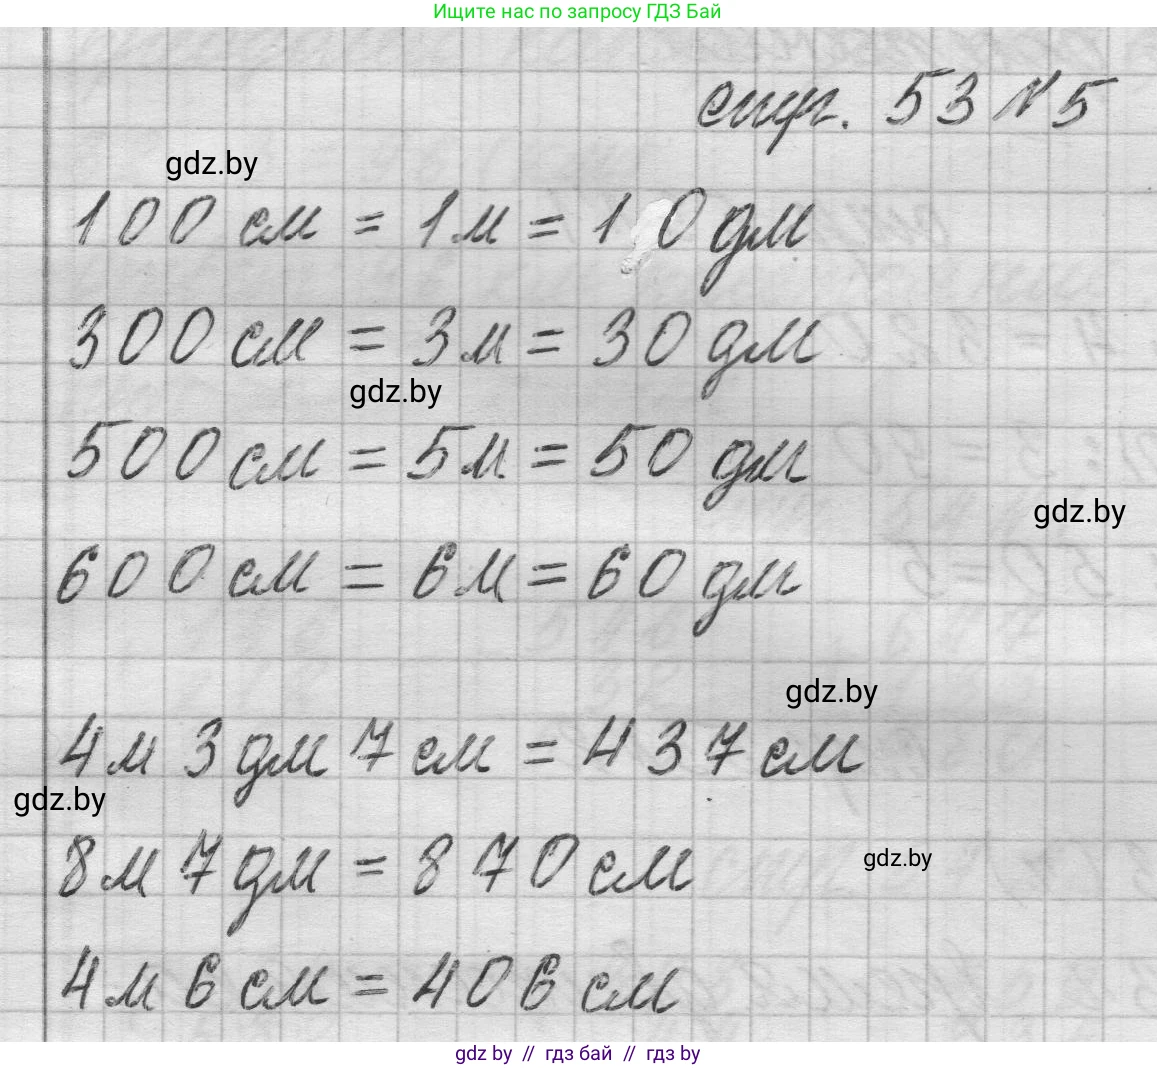 Ищите нас по запросу ГДЗ Бай
стр. 53 №5
gdz.by
100 см = 1 м = 10 дм
300 см = 3 м = 30 дм
gdz.by
500 см = 5 м = 50 дм
gdz.by
600 см = 6 м = 60 дм
gdz.by
4 м 3 дм 7 см = 437 см
gdz.by
8 м 7 дм = 870 см
gdz.by
4 м 6 см = 406 см
gdz by // гдз бай // гдз by